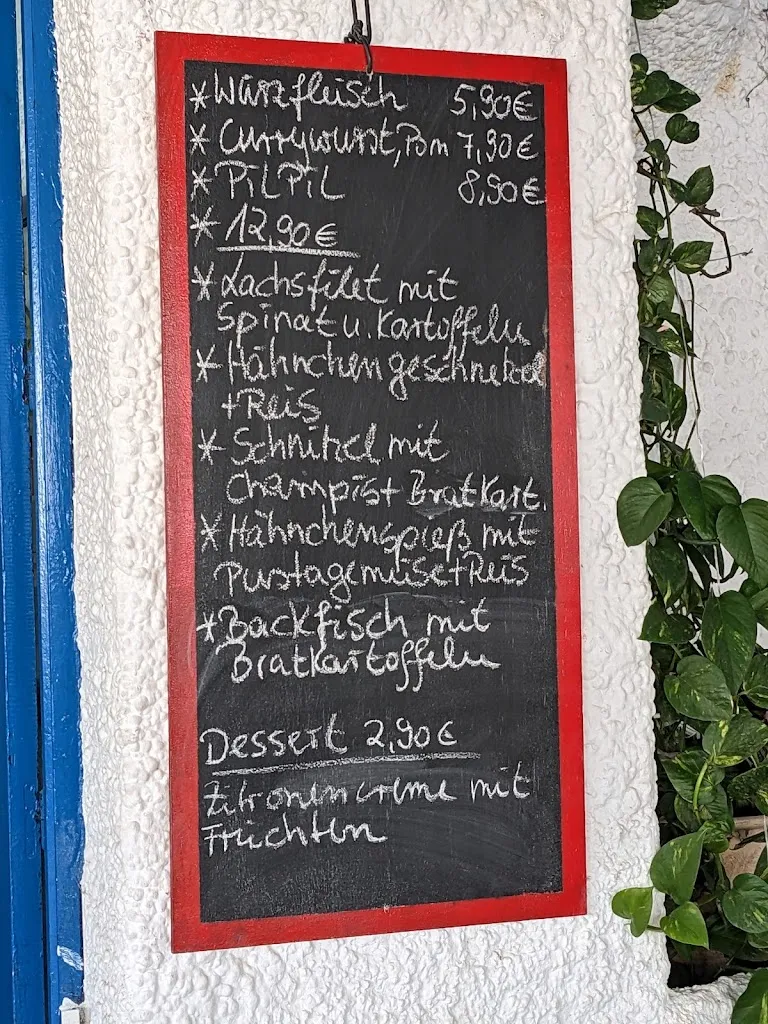 * Würzfleisch 5,90€
* Currywurst, Pom 7,90€
* PiLPiL 8,90€
* 12,90€
* Lachsfilet mit
Spinat u. Kartoffeln
* Hähnchengeschnetzel
+Reis
* Schnitzel mit
Champis+Bratkart.
* Hähnchenspieß mit
Pusztagemüse+Reis
* Backfisch mit
Bratkartoffeln
Dessert 2,90€
Zitronencreme mit
Früchten